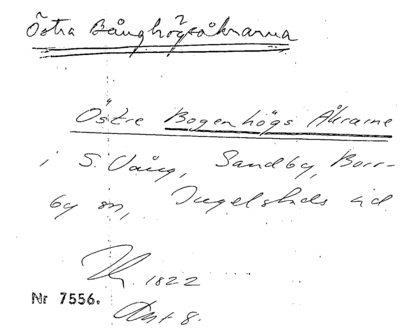 Östra Bånghögsåkrarna
Östre Bogenhögs Åkrarne
i S. Vång, Sandby, Borr-
by sn, Ingelstads hd
1822
Nr 7556. Akt 8.